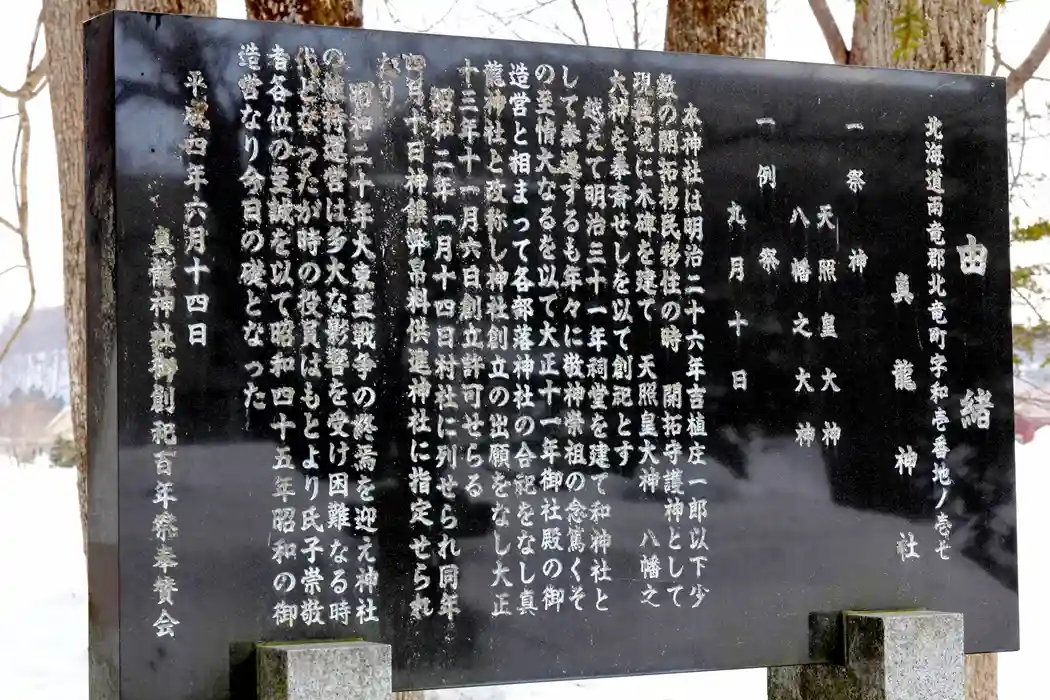 由緒
北海道雨竜郡北竜町字和壱番地ノ壱七
真龍神社
一 祭神
天照皇大神
八幡之大神
一 例祭
九月十日
本神社は明治二十六年吉植庄一郎以下少
数の開拓移民移住の時 開拓守護神として
現社境に木碑を建て 天照皇大神 八幡之
大神を奉斎せしを以て創祀とす
越えて明治三十一年祠堂を建て和神社と
して奉遷するも年々に敬神崇祖の念篤くそ
の至情大なるを以て大正十一年御社殿の御
造営と相まって各部落神社の合祀をなし真
龍神社と改称し神社創立の出願をなし大正
十三年十一月六日創立許可せらる
昭和二年一月十四日村社に列せられ同年
四月十日神饌幣帛料供進神社に指定せられ
たり
昭和二十年大東亜戦争の終焉を迎え神社
の維持運営は多大な影響を受け困難なる時
代となったが時の役員はもとより氏子崇敬
者各位の至誠を以て昭和四十五年昭和の御
造営なり今日の礎となった
平成四年六月十四日
真龍神社御創祀百年祭奉賛会